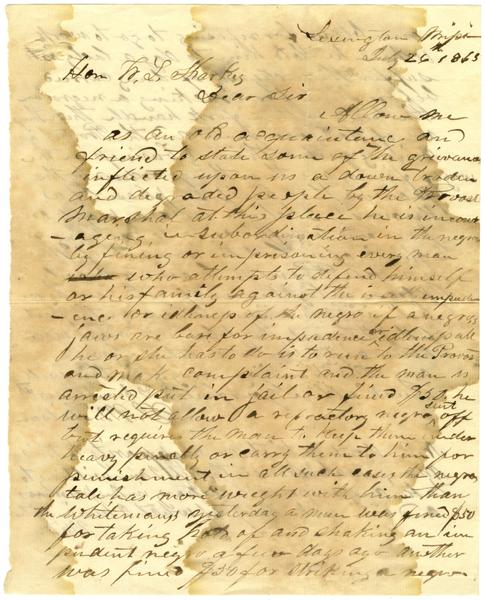 Lexington Missi
July 26th 1865
Hon W. L. Sharkey
Dear Sir
Allow me
as an old acquaintence and
friend to state some of the grievance
inflicted upon us a down troden
and degraded people by the Provost
Marshal at this place he is incour
-aging insubordination in the negroes
by fining or imprisoning every man
who attempts to defend himself
or his family against the impude
-ence or idleness of the negro if a negros
jaws are boxed for impudence or idleness all
he or she has to do is to run to the Provost
and make complaint and the man is
arrested put in jail or fined $50 he
will not allow a refractory negro sent off
but requires the man to keep them under
heavy penalty or carry them to him for
punishment in all such cases the negroes
tale has more weight with him than
the whitemans yesterday a man was fined $50
for taking hold of and shaking an im
pudent negro a few days ago another
was fined $50 for striking a negro